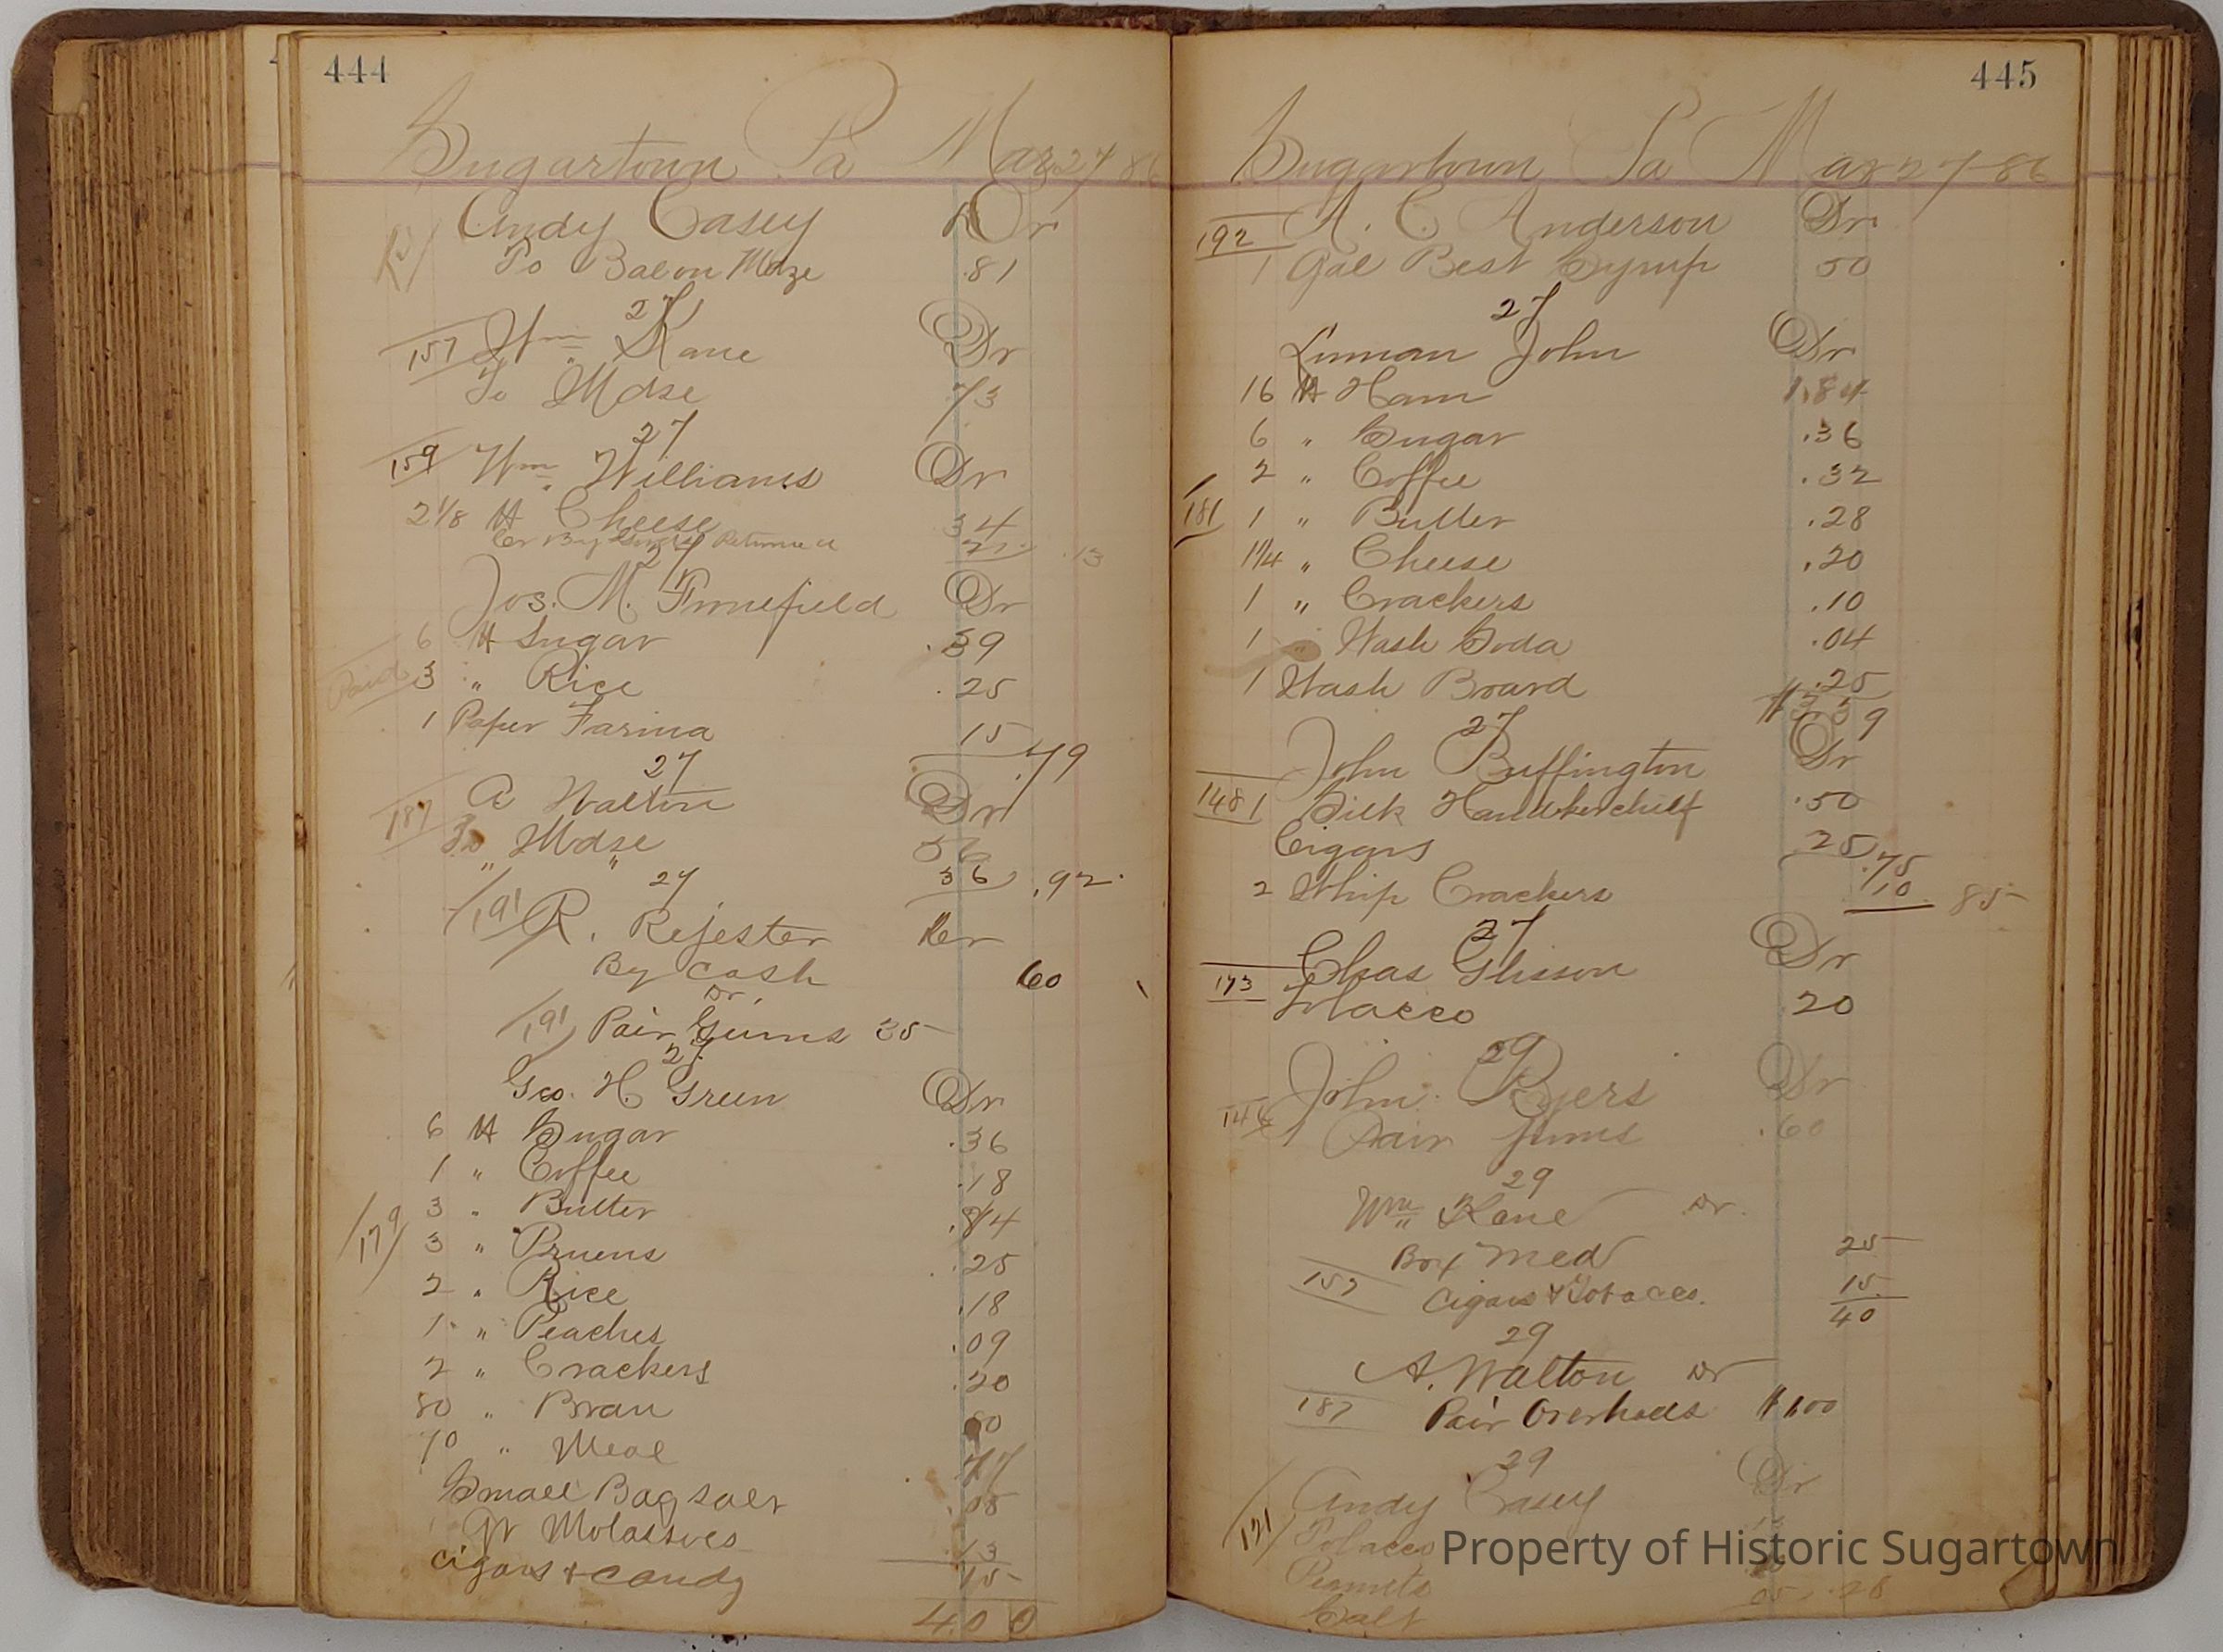 444
Sugartown Pa Mar 27 86
Andy Casey Dr
To Bal on Mdze .81
27
157 Wm Kane Dr
To Mdse 73
27
159 Wm Williams Dr
2 1/8 lb Cheese 34
Cr By Returned 21 .13
27
Jos. M. Dr
6 lb Sugar .39
Paid 3 " Rice .25
1 Paper Farina 15 .79
27
187 A Walton Dr
To Mdse 56
" " 36 .92
27
191 R. Rejester Cr
By Cash 60
Dr
191 Pair Gums 35
27
Geo. H. Green Dr
6 lb Sugar .36
1 " Coffee .18
3 " Butter .84
179 3 " Pruens .25
2 " Rice .18
1 " Peaches .09
2 " Crackers .20
80 " Bran 80
70 " Meal .77
Small Bag salt .05
1 Qr Molasses 13
Cigars + Candy 15
4.00
445
Sugartown Pa Mar 27-86
192 A. C. Anderson Dr
1 Gal Best Syrup 50
27
Linman John Dr
16 lb Ham 1.84
6 " Sugar .36
2 " Coffee .32
181 1 " Butter .28
1 1/4 " Cheese .20
1 " Crackers .10
1 " Wash Soda .04
1 Wash Board .25
$3.39
27
John Buffington Dr
148 1 Silk Handkerchief .50
Cigars 25 .75
2 Whip Crackers 10 85
27
Chas Glisson Dr
173 Tobacco .20
29
John Byers Dr
144 1 Pair Gums .60
29
Wm Kane Dr.
Box Med 25
157 Cigars & Tobacco. 15
40
29
A. Walton Dr
187 Pair Overhauls $1.00
29
Andy Casey Dr
121 Tobacco
Peanuts
Salt 05 .28
Property of Historic Sugartown